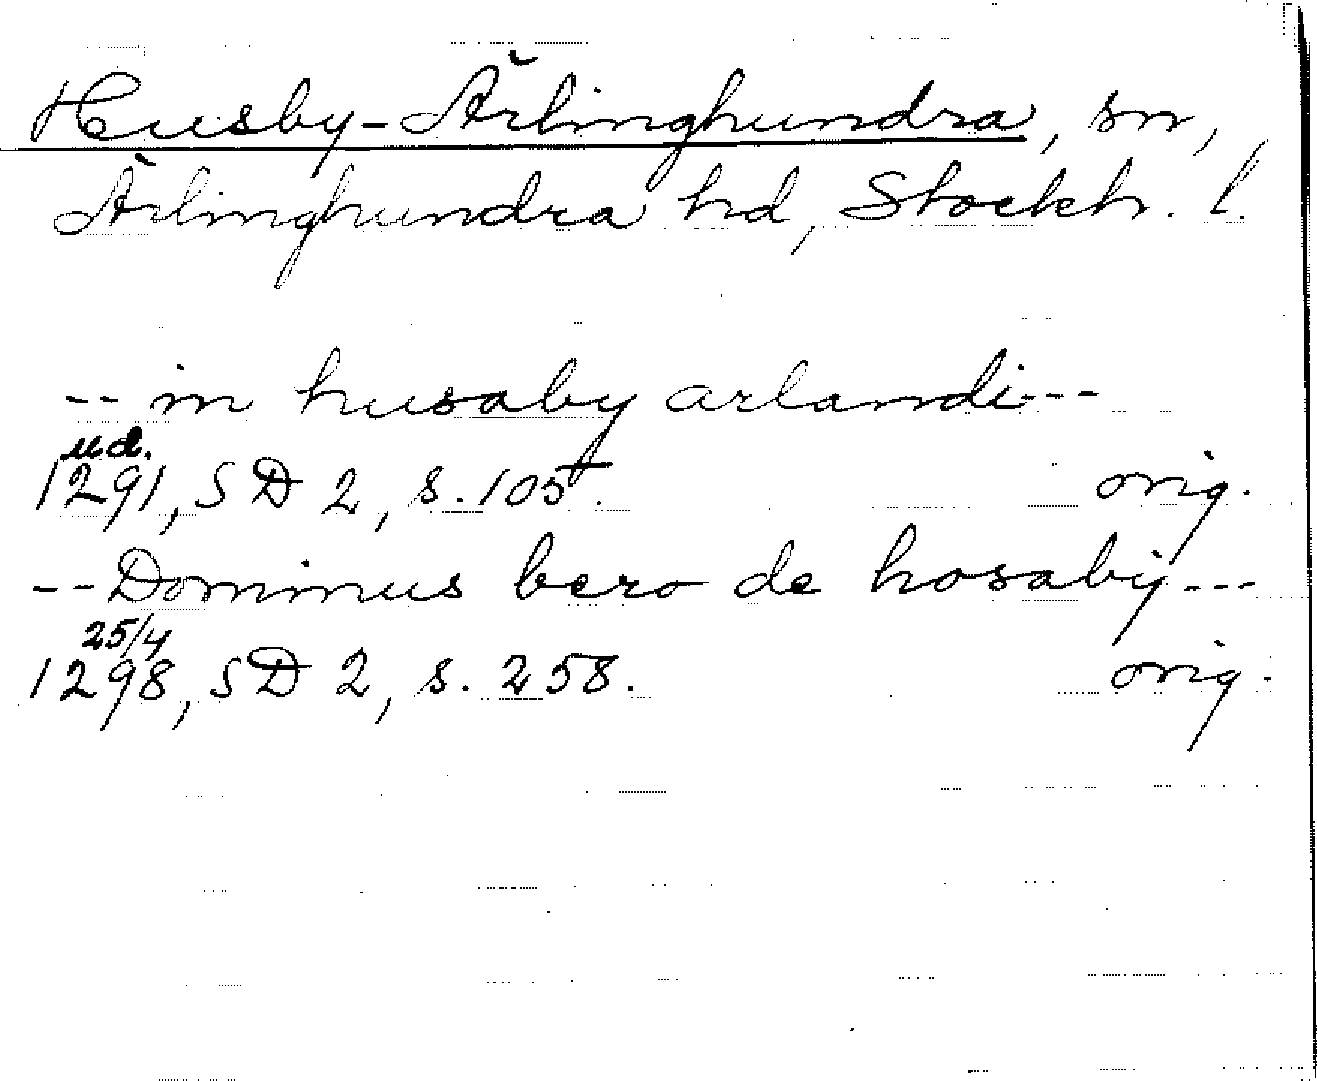 Husby-Ärlinghundra, sn,
Ärlinghundra hd, Stockh. l.
-- in husaby arlandi---
u.d.
1291, SD 2, s. 105.
orig.
-- Dominus bero de hosaby---
25/4
1298, SD 2, s. 258.
orig.